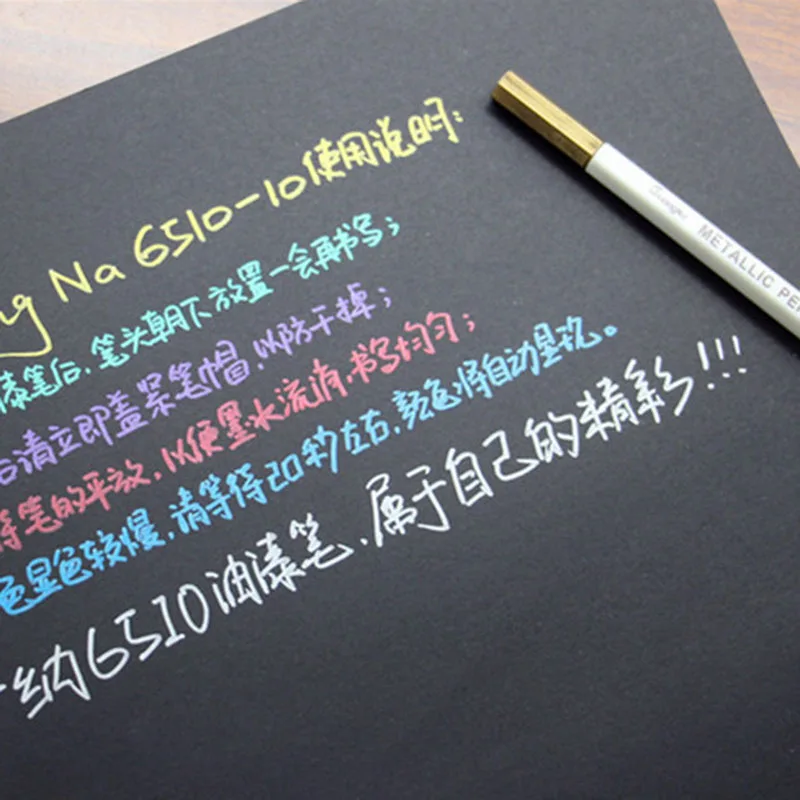 ng Na 6510-10使用说明:
漆笔后,笔头朝下放置一会再书写;
后请立即盖紧笔帽,以防干掉;
持笔的平放,以便墨水流淌,书写均匀;
色显色较慢,请等待20秒左右,颜色将自动显现。
纳6510油漆笔,属于自己的精彩!!!
METALLIC PEN